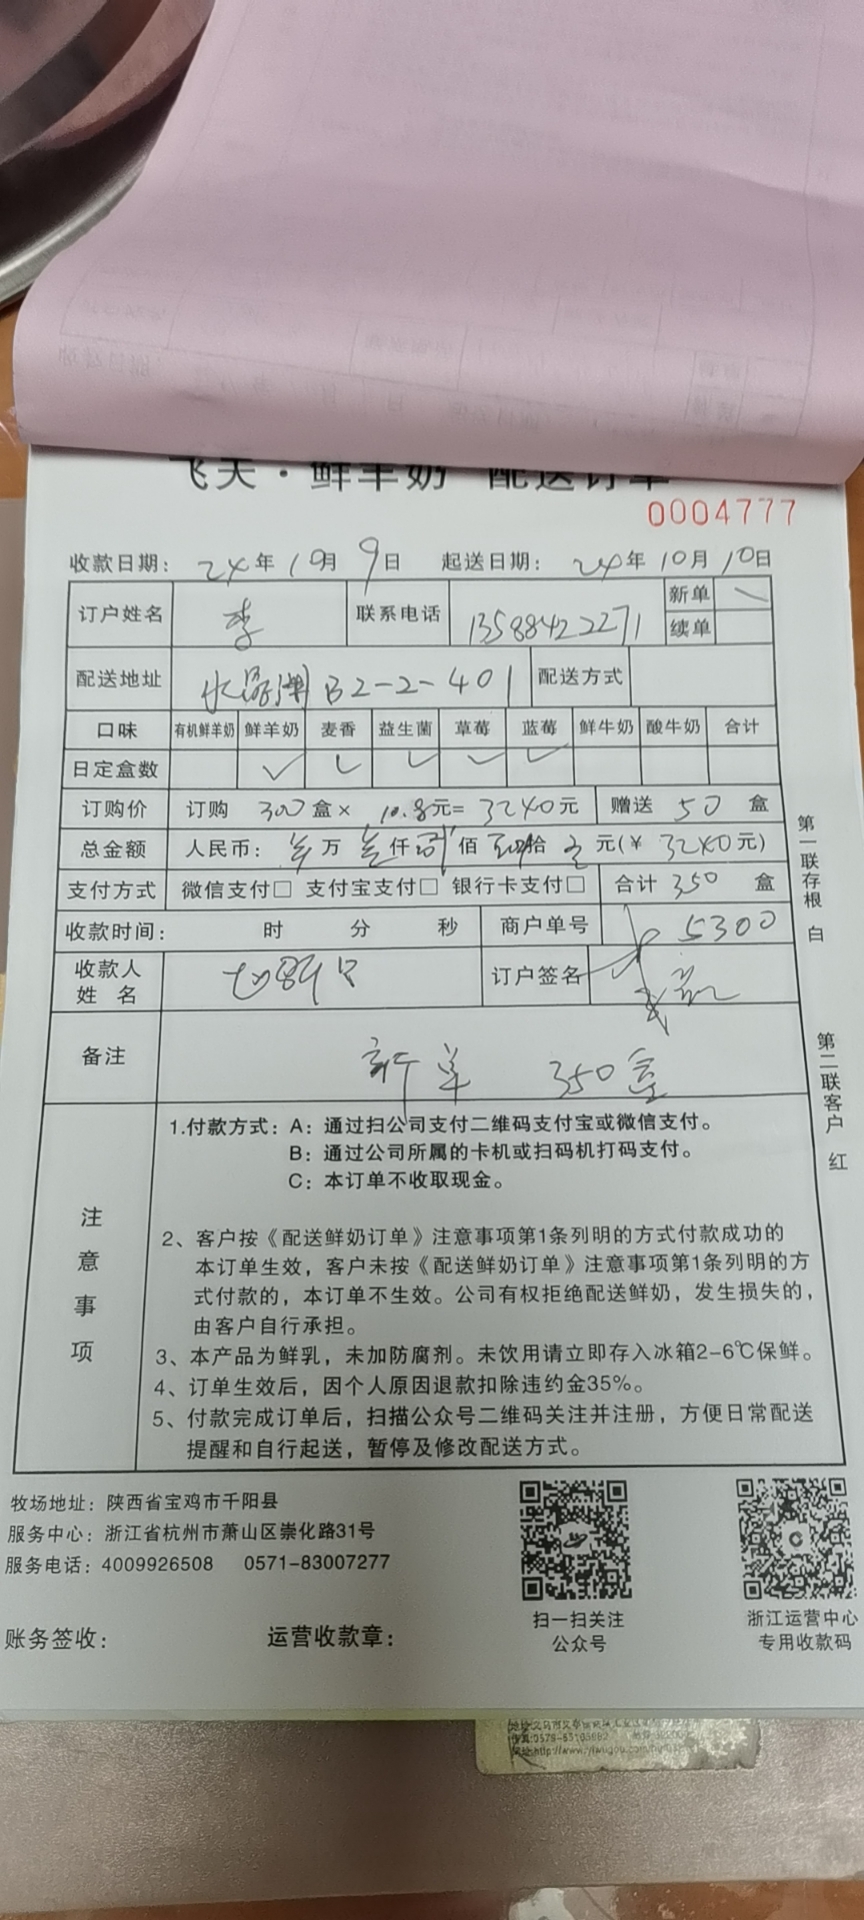 飞天·鲜羊奶 配送订单
0004777
收款日期： 24年10月9日 起送日期： 24年10月10日
订户姓名 李 联系电话 13588422271 新单
续单
配送地址 水晶湖 B2-2-401 配送方式
口味 有机鲜羊奶 鲜羊奶 麦香 益生菌 草莓 蓝莓 鲜牛奶 酸牛奶 合计
日定盒数 ✓ ✓ ✓ ✓ ✓
订购价 订购 300 盒× 10.8元= 3240元 赠送 50 盒
总金额 人民币： 万 仟 佰 拾 元(￥ 3240元)
支付方式 微信支付□ 支付宝支付□ 银行卡支付□ 合计 350 盒
收款时间： 时 分 秒 商户单号 5300
收款人姓名 订户签名
备注 新单 350盒
注意事项
1.付款方式：A：通过扫公司支付二维码支付宝或微信支付。
B：通过公司所属的卡机或扫码机打码支付。
C：本订单不收取现金。
2、客户按《配送鲜奶订单》注意事项第1条列明的方式付款成功的
本订单生效，客户未按《配送鲜奶订单》注意事项第1条列明的方
式付款的，本订单不生效。公司有权拒绝配送鲜奶，发生损失的，
由客户自行承担。
3、本产品为鲜乳，未加防腐剂。未饮用请立即存入冰箱2-6℃保鲜。
4、订单生效后，因个人原因退款扣除违约金35%。
5、付款完成订单后，扫描公众号二维码关注并注册，方便日常配送
提醒和自行起送，暂停及修改配送方式。
第一联存根 白
第二联客户 红
牧场地址：陕西省宝鸡市千阳县
服务中心：浙江省杭州市萧山区崇化路31号
服务电话：4009926508 0571-83007277
扫一扫关注
公众号
浙江运营中心
专用收款码
账务签收： 运营收款章：